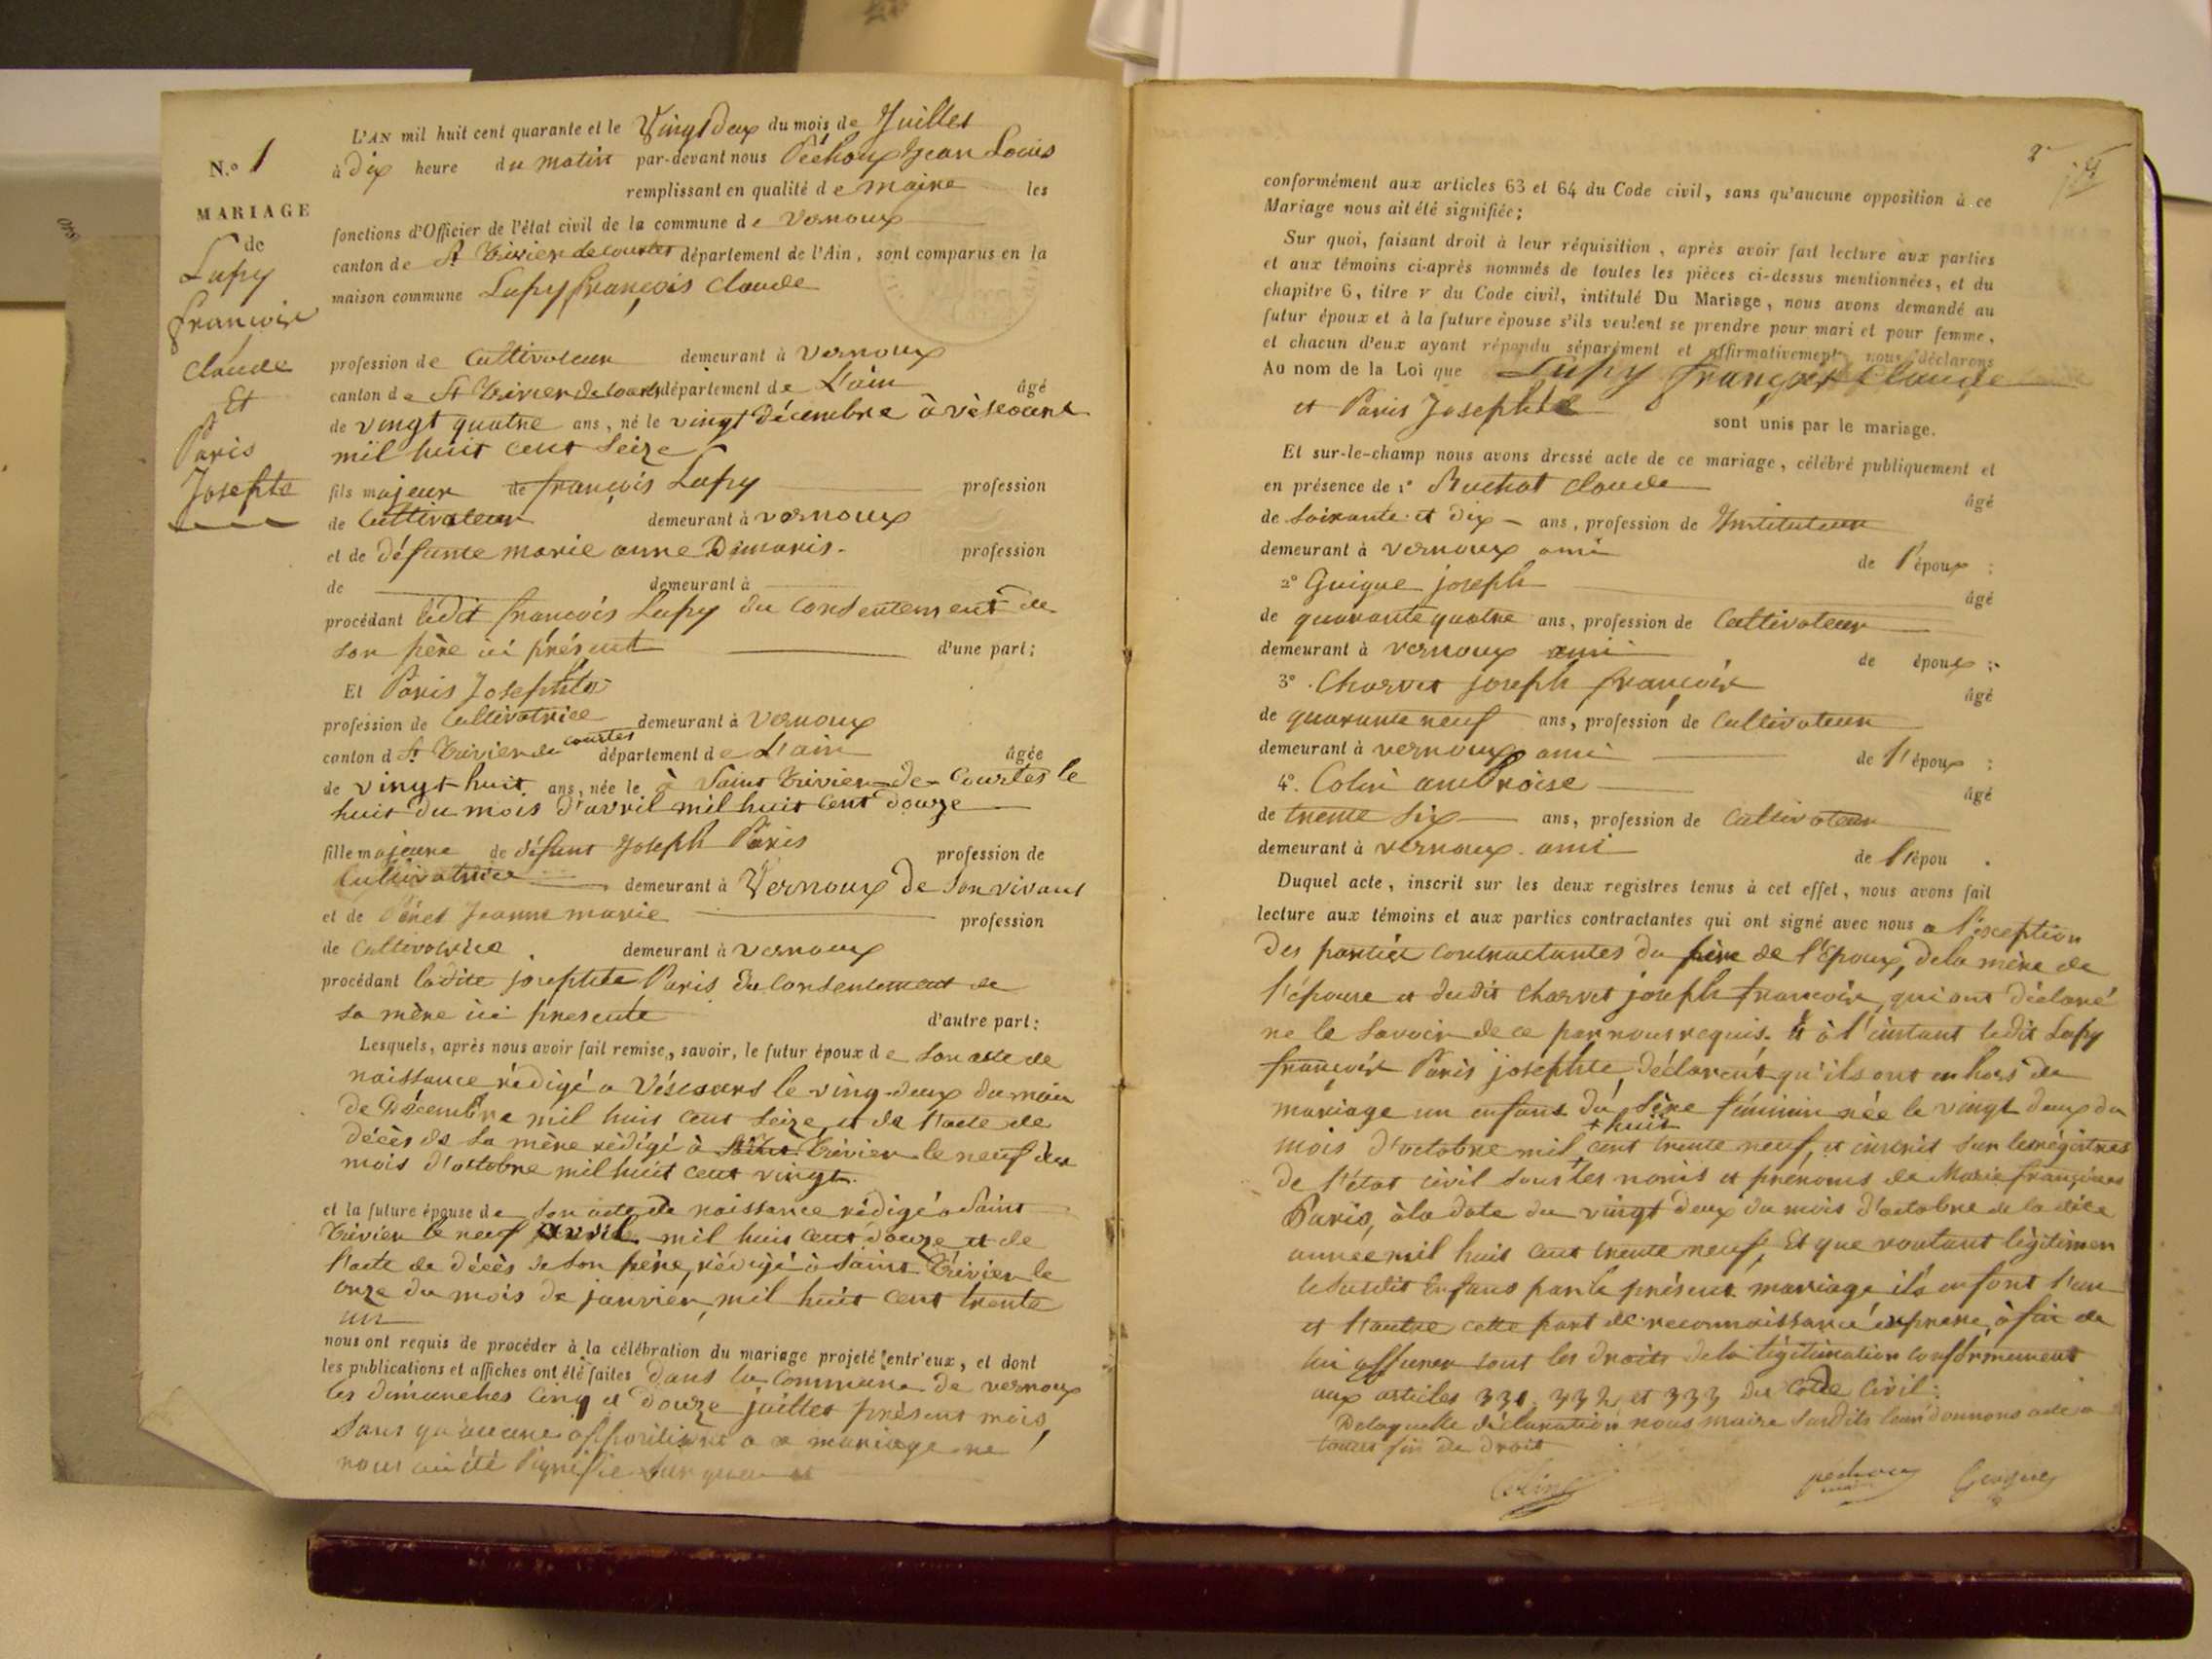 N.o 1
MARIAGE
de
Lupy
françois
claude
Et
Paris
Josephte
L'AN mil huit cent quarante et le Vingt deux du mois de Juillet
à dix heure du matin par-devant nous Péchoux Jean Louis
remplissant en qualité de maire les
fonctions d'Officier de l'état civil de la commune de vernoux
canton de St Trivier de courtes département de l'Ain, sont comparus en la
maison commune Lupy françois claude
profession de Cultivateur demeurant à vernoux
canton de St Trivier de Courtes département de L'ain âgé
de vingt quatre ans, né le vingt décembre à vèscours
mil huit cent seize
fils majeur de françois Lupy profession
de Cultivateur demeurant à vernoux
et de défunte marie anne Demaris. profession
de demeurant à
procédant ledit françois Lupy du consentement de
son père ici présent d'une part;
Et Paris Josephte
profession de Cultivatrice demeurant à vernoux
canton d St Trivier de courtes département de L'ain âgée
de vingt huit ans, née le à Saint Trivier de Courtes le
huit du mois d'avril mil huit cent douze
fille majeure de défunt Joseph Paris profession de
Cultivatrice demeurant à Vernoux de son vivant
et de Jeanne marie profession
de Cultivatrice demeurant à vernoux
procédant ladite josephte Paris du consentement de
sa mère ici presente d'autre part:
Lesquels, après nous avoir fait remise, savoir, le futur époux de son acte de
naissance rédigé a Véscours le ving-deux du mois
de Décembre mil huit cent seize, et de l'acte de
décès de sa mère rédigé à saint Trivier le neuf du
mois d'octobre mil huit cent vingt.
et la future épouse de son acte de naissance rédigé à Saint
Trivier le neuf avril mil huit cent douze et de
l'acte de décès de son père, rédigé à Saint Trivier le
onze du mois de janvier mil huit cent trente
un
nous ont requis de procéder à la célébration du mariage projeté entr'eux, et dont
les publications et affiches ont été faites dans la commune de vernoux
les dimanches cinq et douze juillet présent mois,
sans qu'aucune opposition a ce mariage ne
nous ait été signifie sur quoi
2
conformément aux articles 63 et 64 du Code civil, sans qu'aucune opposition à ce
Mariage nous ait été signifiée;
Sur quoi, faisant droit à leur réquisition, après avoir fait lecture aux parties
et aux témoins ci-après nommés de toutes les pièces ci-dessus mentionnées, et du
chapitre 6, titre v du Code civil, intitulé Du Mariage, nous avons demandé au
futur époux et à la future épouse s'ils veulent se prendre pour mari et pour femme,
et chacun d'eux ayant répondu séparément et affirmativement, nous déclarons
Au nom de la Loi que Lupy françois Claude
et Paris Josephte
sont unis par le mariage.
Et sur-le-champ nous avons dressé acte de ce mariage, célébré publiquement et
en présence de 1o Buchot claude âgé
de soixante et dix ans, profession de Instituteur
demeurant à vernoux ami de l'époux ;
2o Guigue joseph âgé
de quarante quatre ans, profession de Cultivateur
demeurant à vernoux ami de époux ;
3o. Charvet joseph françois âgé
de quarante neuf ans, profession de Cultivateur
demeurant à vernoux ami de l'époux ;
4o. Colin ambroise âgé
de trente six ans, profession de Cultivateur
demeurant à vernoux. ami de l'épou .
Duquel acte, inscrit sur les deux registres tenus à cet effet, nous avons fait
lecture aux témoins et aux parties contractantes qui ont signé avec nous a l'exception
des parties contractantes du père de l'époux, de la mère de
l'épouse et dudit charvet joseph françois, qui ont déclaré
ne le savoir de ce par nous requis. Et à l'instant ledit Lupy
françois Paris josephte, déclarent qu'ils ont en hors de
mariage un enfant du sèxe féminin née le vingt deux du
+ huit
mois d'octobre mil cent trente neuf, et inscrit sur les registres
de l'état civil sous les noms et prénoms de Marie françoise
Paris, à la date du vingt deux du mois d'octobre de la dite
année mil huit cent trente neuf, Et que voulant légitimer
le susdit enfant par le présent mariage ils en font l'un
et l'autre cette part de reconnaissance expresse, à fin de
lui assurer tout les droits de la légitimation conformement
aux articles 331, 332 et 333 du Code Civil:
De laquelle déclaration nous maire susdits leur donnons acte a
toutes fin de droit
Colin péchoux Guigue